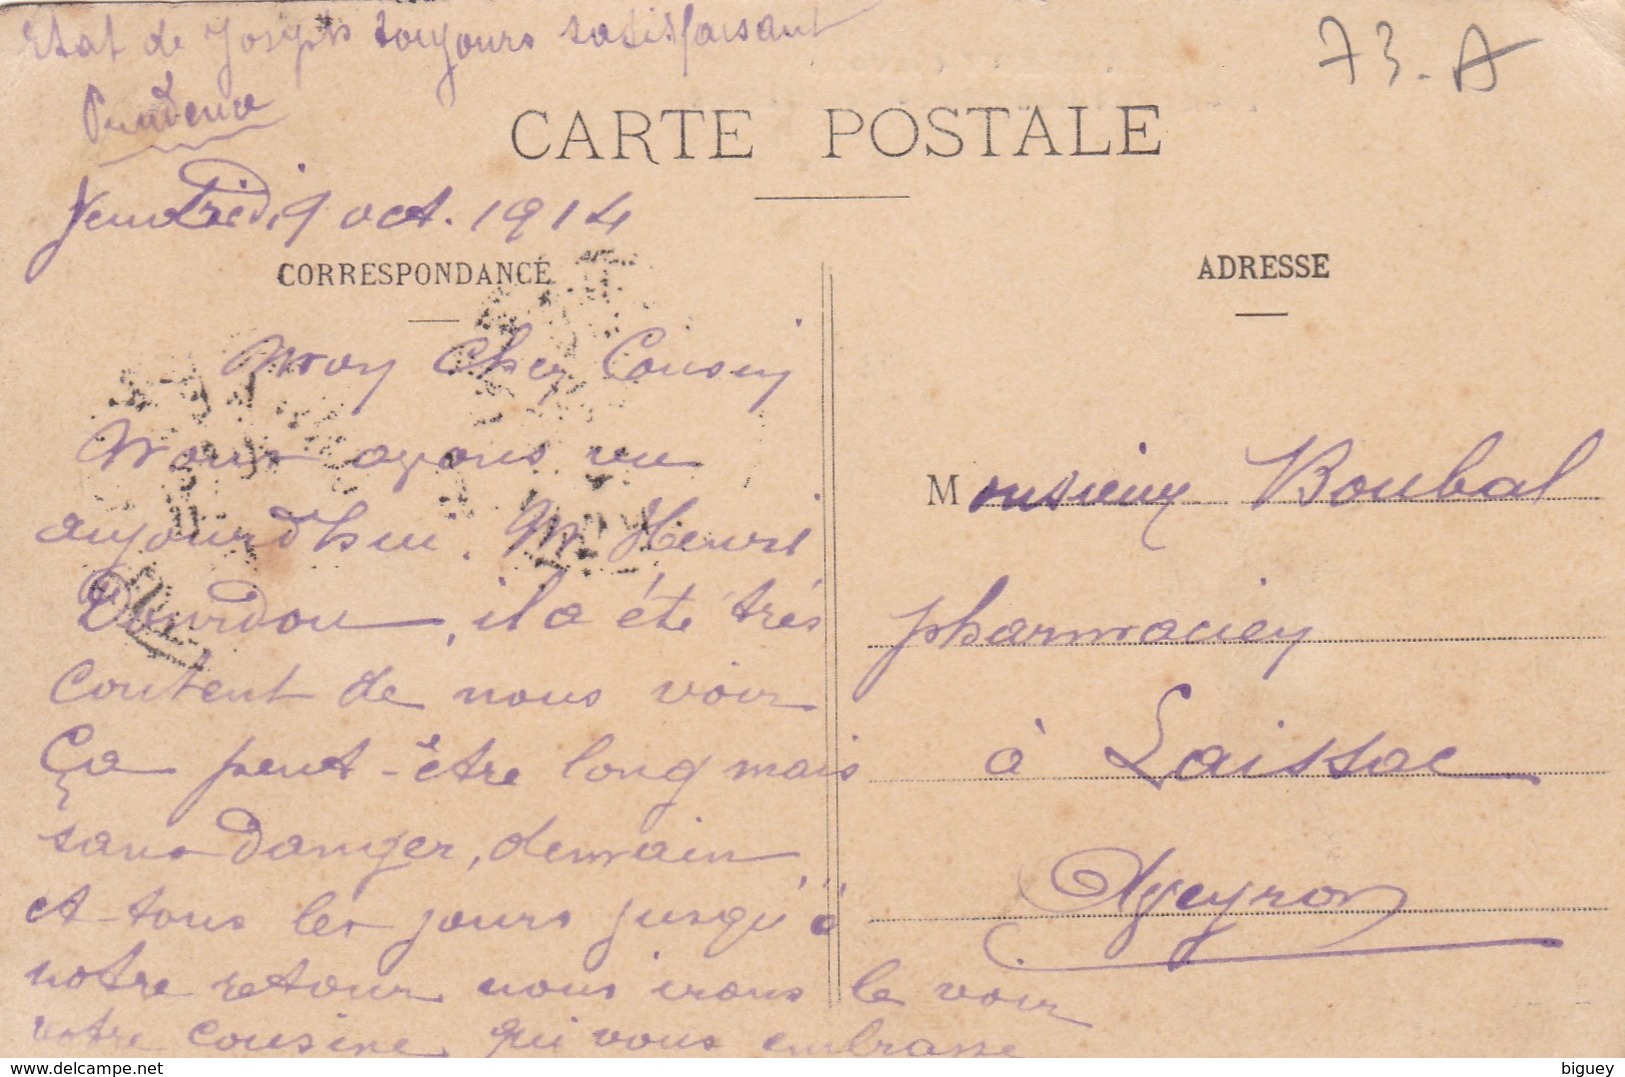 Etat de Joseph toujours satisfaisant
Prudence
73-A
CARTE POSTALE
Vendredi 9 oct. 1914
CORRESPONDANCE
Mon cher Cousin
Nous avons vu
aujourd'hui. Mr Henri
Dourdou, il a été très
content de nous voir
Ça peut-être long mais
sans danger, demain
et tous les jours jusqu'à
notre retour nous irons le voir
votre cousine qui vous embrasse
ADRESSE
Monsieur Boubal
pharmacien
à Laissac
Aveyron
delcampe.net
biguey